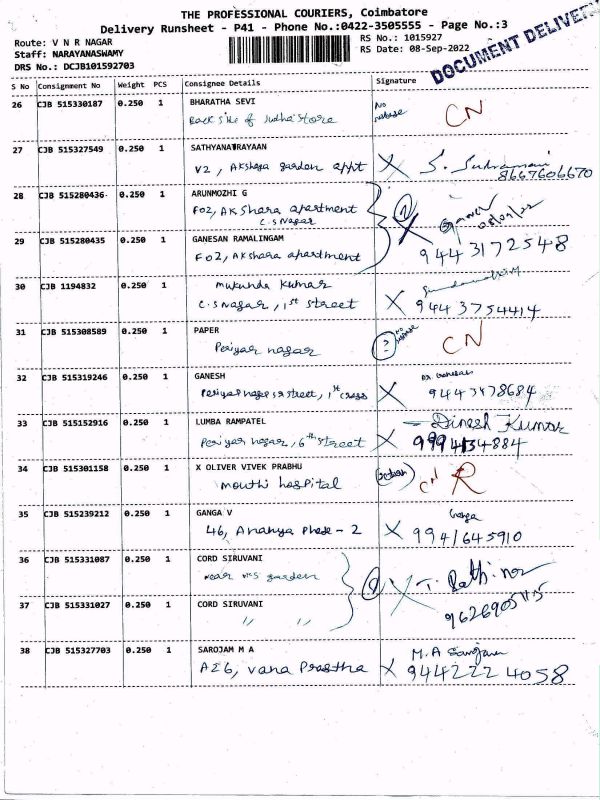 THE PROFESSIONAL COURIERS, Coimbatore
Delivery Runsheet - P41 - Phone No.:0422-3505555 - Page No.:3
Route: V N R NAGAR
Staff: NARAYANASWAMY
DRS No.: DCJB101592703
RS No.: 1015927
RS Date: 08-Sep-2022
DOCUMENT DELIVER
S No Consignment No Weight PCS Consignee Details Signature
26 CJB 515330187 0.250 1 BHARATHA SEVI No CN
Back side of Sudha Store
27 CJB 515327549 0.250 1 SATHYANATRAYAAN
V2, Akshara garden appt X S. 8667606670
28 CJB 515280436 0.250 1 ARUNMOZHI G
F02, Akshara apartment
C.S Nagar
29 CJB 515280435 0.250 1 GANESAN RAMALINGAM
F02, Akshara apartment 9443172548
30 CJB 1194832 0.250 1 mukunda kumar
C.S nagar, 1st street X 9443754414
31 CJB 515308589 0.250 1 PAPER
Periyar nagar ? CN
32 CJB 515319246 0.250 1 GANESH
street, 1st cross X 9443478684
33 CJB 515152916 0.250 1 LUMBA RAMPATEL Dinesh Kumar
Periyar nagar, 6th street X 9994134884
34 CJB 515301158 0.250 1 X OLIVER VIVEK PRABHU
mouthi hospital CN R
35 CJB 515239212 0.250 1 GANGA V Ganga
46, Ananya Phase - 2 X 9941645910
36 CJB 515331087 0.250 1 CORD SIRUVANI
near garden X T.
37 CJB 515331027 0.250 1 CORD SIRUVANI
" "
38 CJB 515327703 0.250 1 SAROJAM M A M.A
A26, vana Prastha X 9442224058